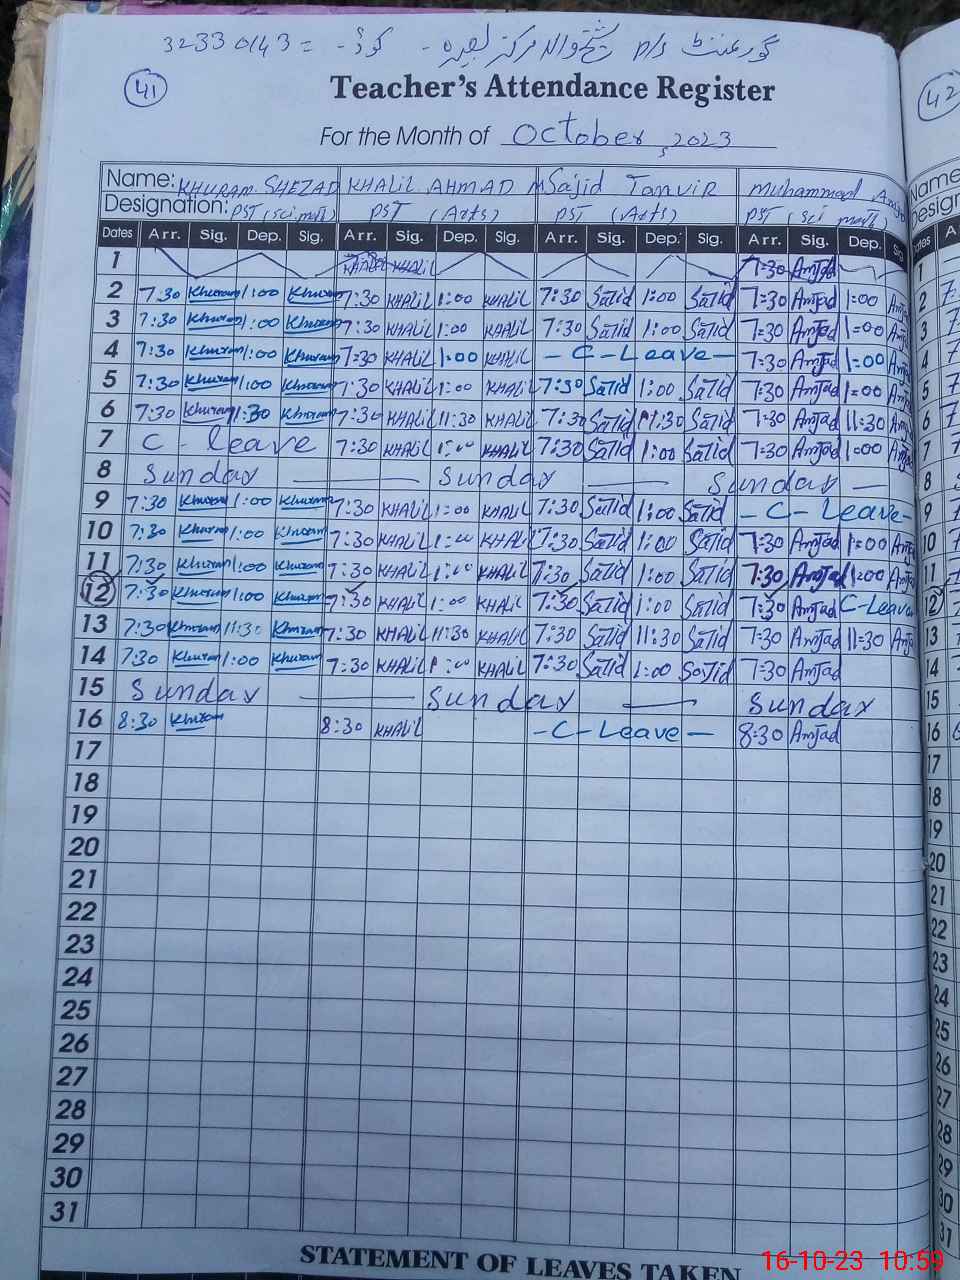 گورنمنٹ p/s شیخوالہ مرکز لعیرہ - کوڈ - = 32330143
41
Teacher's Attendance Register
For the Month of October, 2023
Name: KHURAM SHEZAD KHALIL AHMAD M Sajid Tanvir Muhammad
Designation: PST (sci math) PST (Arts) PST (Arts) PST (Sci math)
Dates Arr. Sig. Dep. Sig. Arr. Sig. Dep. Sig. Arr. Sig. Dep. Sig. Arr. Sig. Dep.
1 KHALIL 7:30 Amjad
2 7:30 Khuram 1:00 Khuram 7:30 KHALIL 1:00 KHALIL 7:30 Sajid 1:00 Sajid 7:30 Amjad 1:00
3 7:30 Khuram 1:00 Khuram 7:30 KHALIL 1:00 KHALIL 7:30 Sajid 1:00 Sajid 7:30 Amjad 1:00
4 7:30 Khuram 1:00 Khuram 7:30 KHALIL 1:00 KHALIL - C - Leave - 7:30 Amjad 1:00
5 7:30 Khuram 1:00 Khuram 7:30 KHALIL 1:00 KHALIL 7:30 Sajid 1:00 Sajid 7:30 Amjad 1:00
6 7:30 Khuram 11:30 Khuram 7:30 KHALIL 11:30 KHALIL 7:30 Sajid 11:30 Sajid 7:30 Amjad 11:30
7 C - leave 7:30 KHALIL 1:00 KHALIL 7:30 Sajid 1:00 Sajid 7:30 Amjad 1:00
8 Sunday — Sunday — Sunday —
9 7:30 Khuram 1:00 Khuram 7:30 KHALIL 1:00 KHALIL 7:30 Sajid 1:00 Sajid - C - Leave -
10 7:30 Khuram 1:00 Khuram 7:30 KHALIL 1:00 KHALIL 7:30 Sajid 1:00 Sajid 7:30 Amjad 1:00
11 7:30 Khuram 1:00 Khuram 7:30 KHALIL 1:00 KHALIL 7:30 Sajid 1:00 Sajid 7:30 Amjad 1:00
12 7:30 Khuram 1:00 Khuram 7:30 KHALIL 1:00 KHALIL 7:30 Sajid 1:00 Sajid 7:30 Amjad C-Leave
13 7:30 Khuram 11:30 Khuram 7:30 KHALIL 11:30 KHALIL 7:30 Sajid 11:30 Sajid 7:30 Amjad 11:30
14 7:30 Khuram 1:00 Khuram 7:30 KHALIL 1:00 KHALIL 7:30 Sajid 1:00 Sajid 7:30 Amjad
15 Sunday — Sunday — Sunday
16 8:30 Khuram 8:30 KHALIL - C - Leave - 8:30 Amjad
17
18
19
20
21
22
23
24
25
26
27
28
29
30
31
STATEMENT OF LEAVES TAKEN
16-10-23 10:59